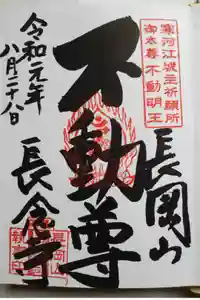 寒河江城主祈願所
御本尊不動明王
長岡山
不動尊
長念寺
令和元年
八月二十八日